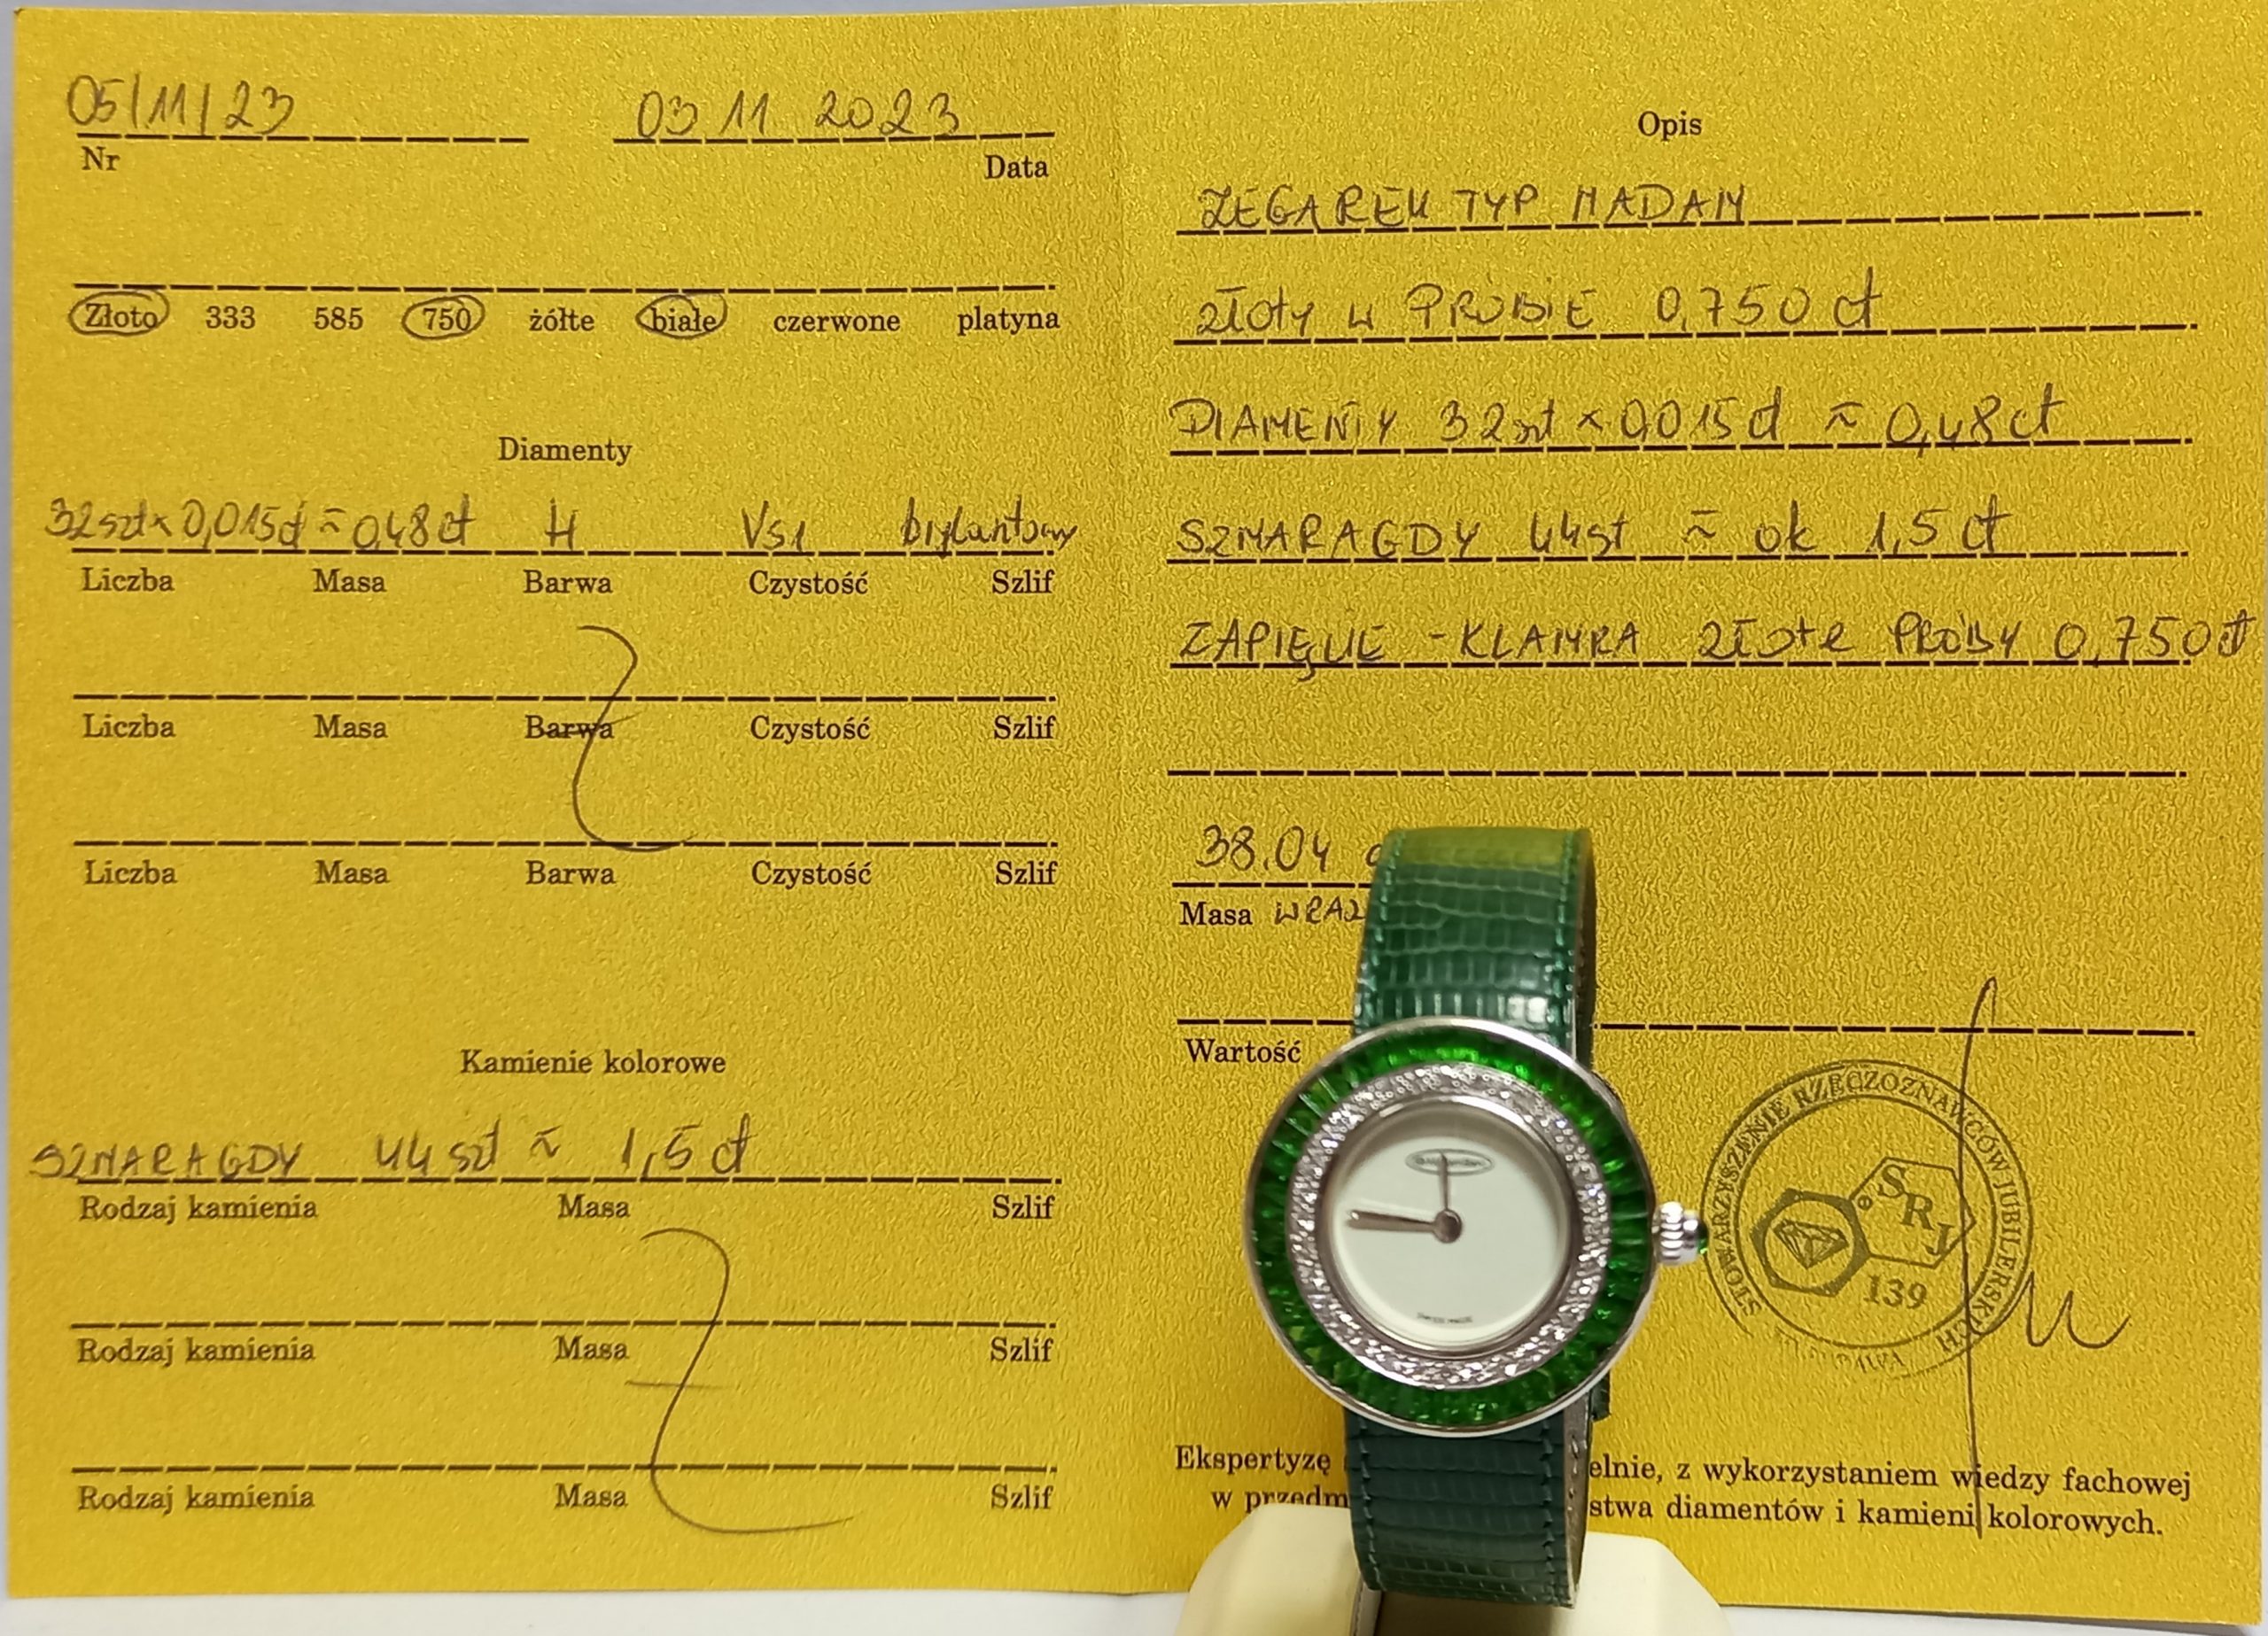 05/11/23
03 11 2023
Nr
Data
Złoto 333 585 750 żółte białe czerwone platyna
Diamenty
32szt x 0,015ct ≈ 0,48ct H VS1 brylantowy
Liczba Masa Barwa Czystość Szlif
Liczba Masa Barwa Czystość Szlif
Liczba Masa Barwa Czystość Szlif
Kamienie kolorowe
SZMARAGDY 44 szt ≈ 1,5 ct
Rodzaj kamienia Masa Szlif
Rodzaj kamienia Masa Szlif
Rodzaj kamienia Masa Szlif
Opis
ZEGAREK TYP MADAM
złoty w PRÓBIE 0,750 ct
DIAMENTY 32szt x 0,015ct ≈ 0,48ct
SZMARAGDY 44szt ≈ ok 1,5 ct
ZAPIĘCIE - KLAMRA złote PRÓBY 0,750ct
38.04
Masa WRAZ
Wartość
STOWARZYSZENIE RZECZOZNAWCÓW JUBILERSKICH
SRJ
139
SWISS MADE
Ekspertyzę elnie, z wykorzystaniem wiedzy fachowej
w przedm stwa diamentów i kamieni kolorowych.